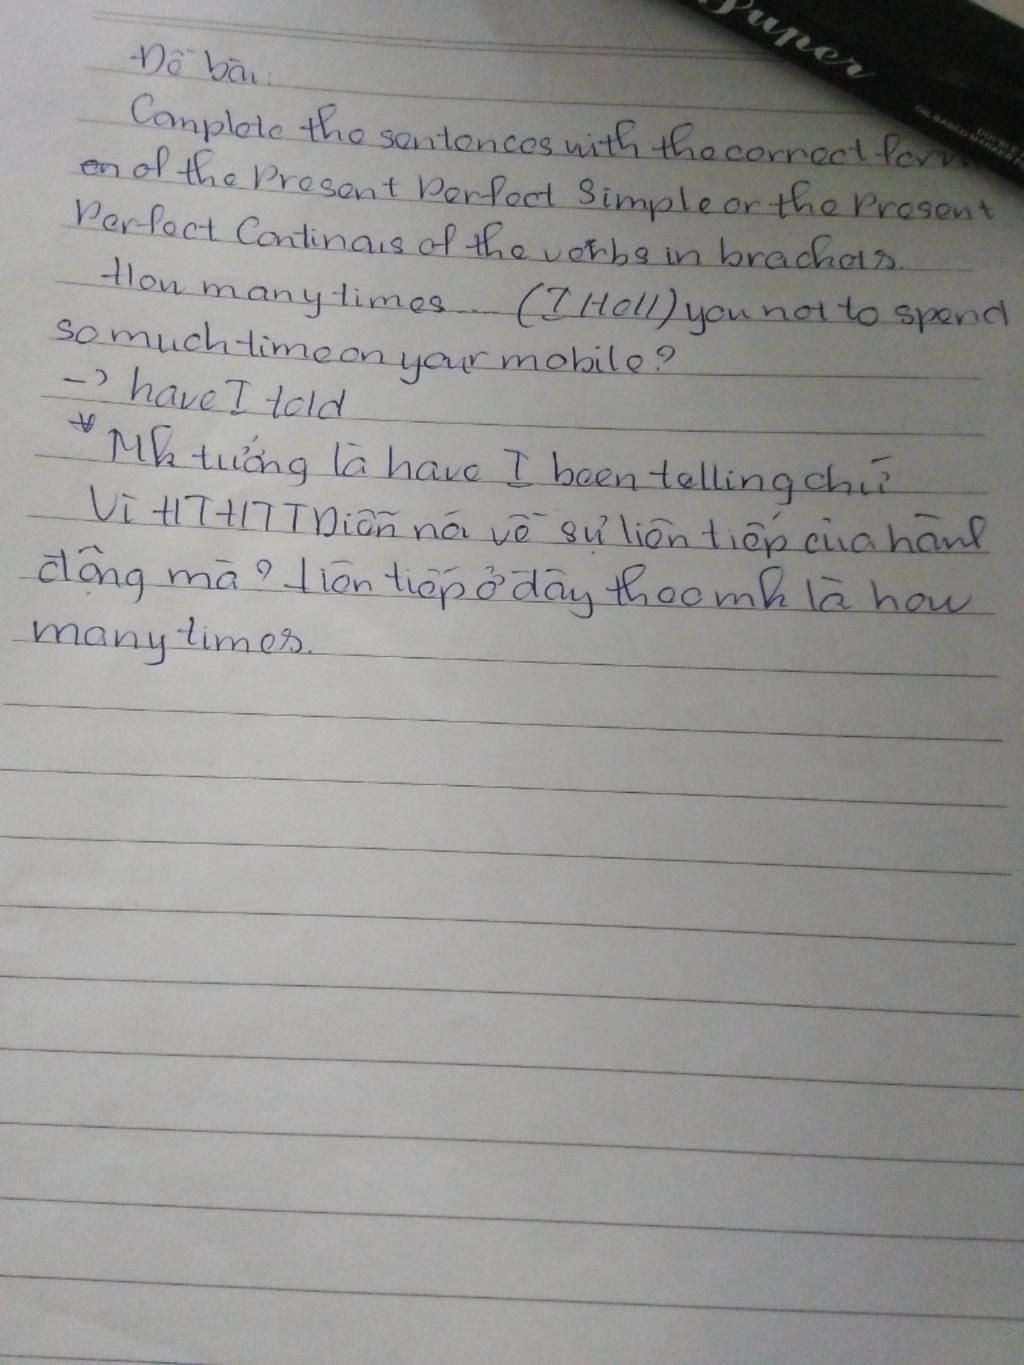 Super
OIL BASED MARKER
DOUBLE
Đề bài:
Complete the sentences with the correct form
en of the Present Perfect Simple or the Present
Perfect Continous of the verbs in brackets.
How many times.... (I/tell) you not to spend
so much time on your mobile?
-> have I told
* Mk tưởng là have I been telling chứ
Vì HTHTTDiễn nó về sự liên tiếp của hành
động mà? Liên tiếp ở đây theo mk là how
many times.